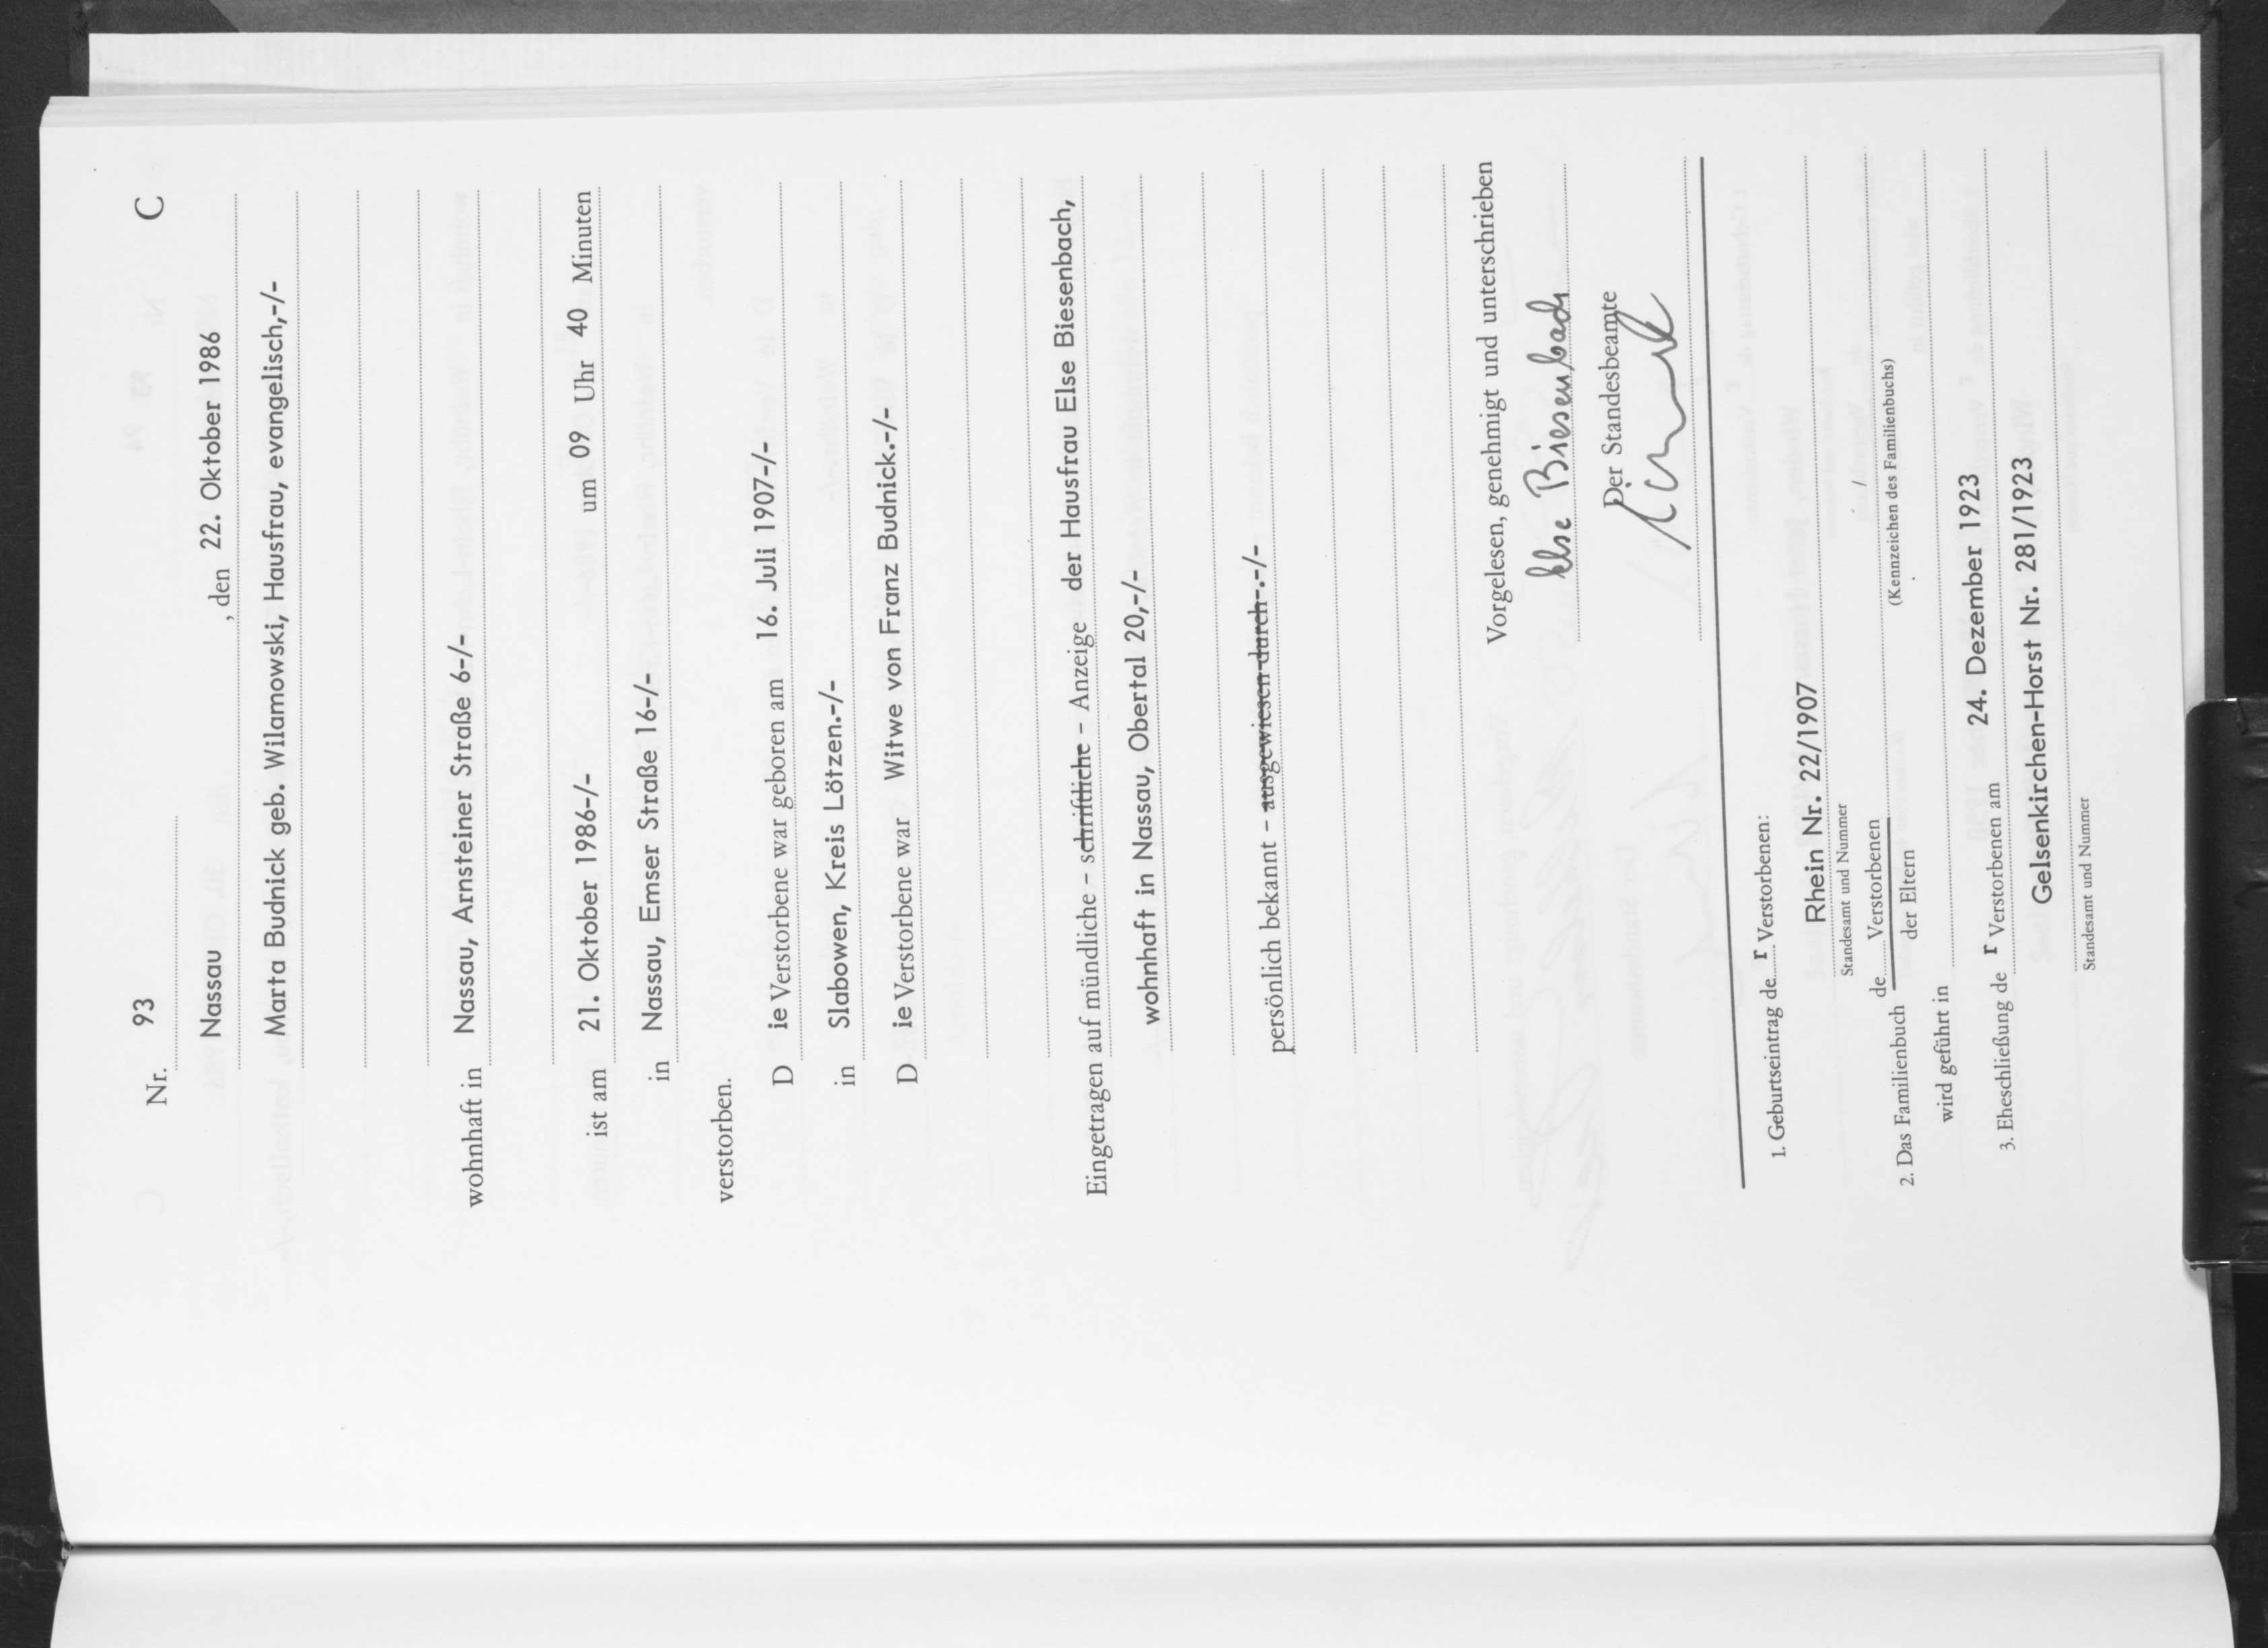 Nr. 93 C
Nassau, den 22. Oktober 1986
Marta Budnick geb. Wilamowski, Hausfrau, evangelisch,-/-
wohnhaft in Nassau, Arnsteiner Straße 6-/-
ist am 21. Oktober 1986-/- um 09 Uhr 40 Minuten
in Nassau, Emser Straße 16-/-
verstorben.
D ie Verstorbene war geboren am 16. Juli 1907-/-
in Slabowen, Kreis Lötzen.-/-
D ie Verstorbene war Witwe von Franz Budnick.-/-
Eingetragen auf mündliche - schriftliche - Anzeige der Hausfrau Else Biesenbach,
wohnhaft in Nassau, Obertal 20,-/-
persönlich bekannt - ausgewiesen durch-.-/-
Vorgelesen, genehmigt und unterschrieben
Else Biesenbach
Der Standesbeamte
1. Geburtseintrag de r Verstorbenen:
Rhein Nr. 22/1907
Standesamt und Nummer
2. Das Familienbuch de Verstorbenen / der Eltern /
(Kennzeichen des Familienbuchs)
wird geführt in
3. Eheschließung de r Verstorbenen am 24. Dezember 1923
Gelsenkirchen-Horst Nr. 281/1923
Standesamt und Nummer